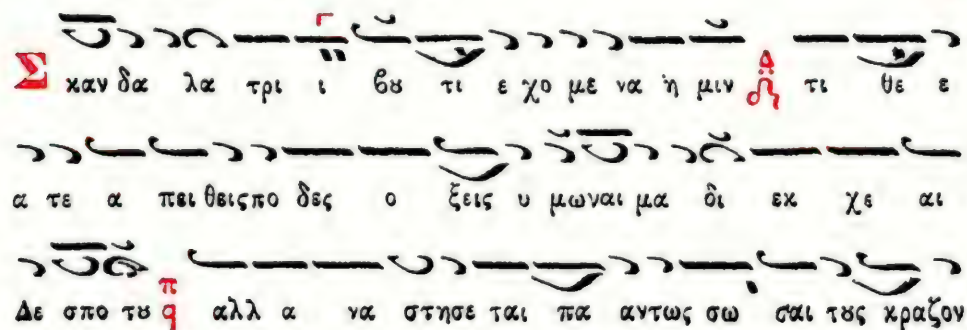 Σ καν δα λα τρι ι βȣ τι ε χο με να ἡ μιν Δ τι θε ε
α τε α πει θεις πο δες ο ξεις υ μων αι μα δι εκ χε αι
Δε σπο τȣ π q αλλ α να στησε ται πα αντως σω σαι τȣς κραζον